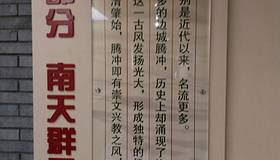 部分 南天群
清肇始，腾冲即有崇文兴教之风，
这一古风发扬光大，形成独特的
多的边城腾冲，历史上却涌现了
别是近代以来，名流更多。